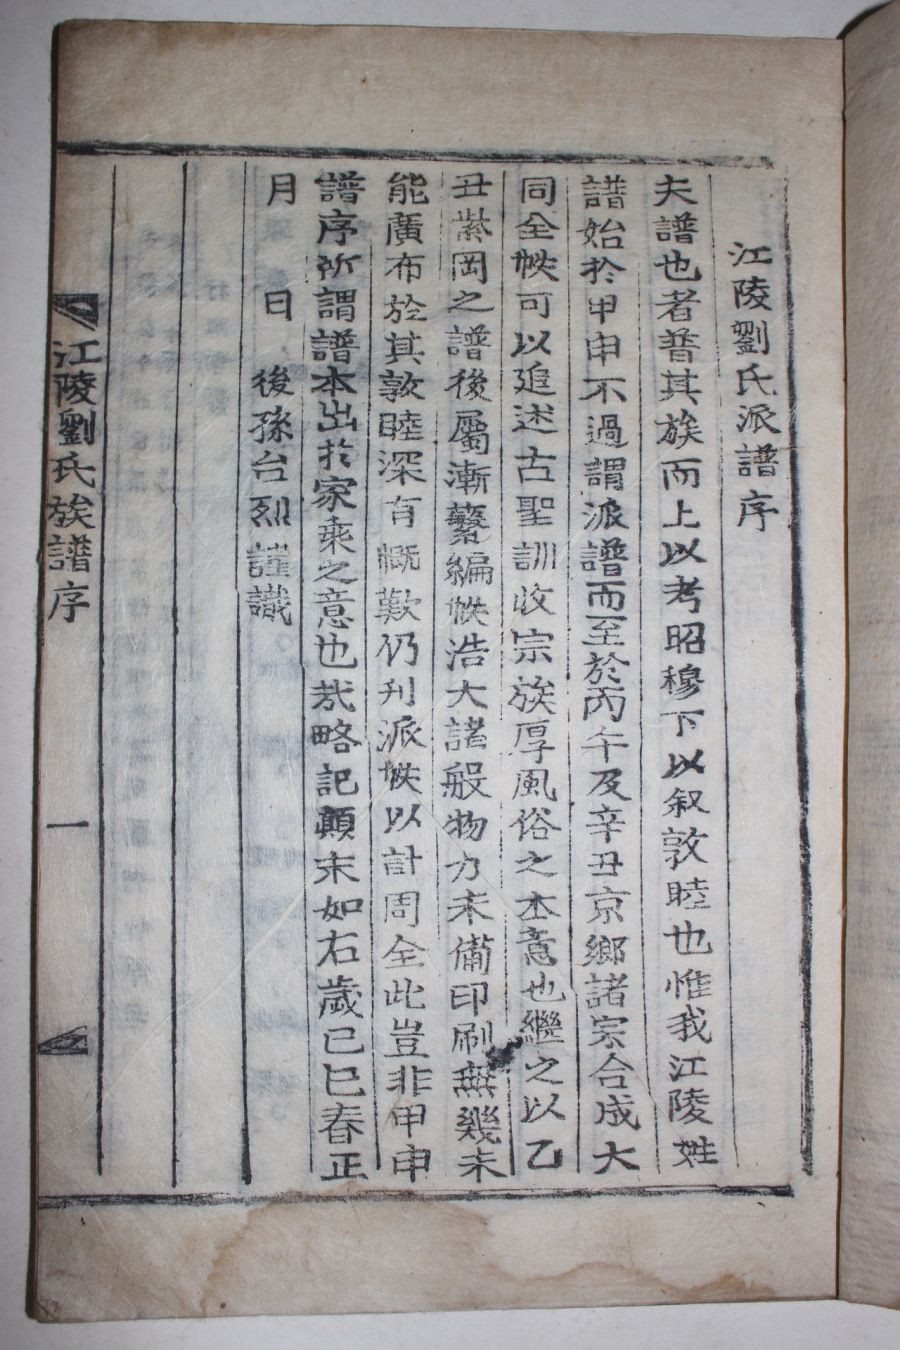 江陵劉氏派譜序
夫譜也者普其族而上以考昭穆下以叙敦睦也惟我江陵姓
譜始於甲申不過謂派譜而至於丙午及辛丑京鄉諸宗合成大
同全帙可以追述古聖訓收宗族厚風俗之本意也繼之以乙
丑紫岡之譜後屬漸蕃編帙浩大諸般物力未備印刷無幾未
能廣布於其敦睦深有慨歎仍刋派帙以計周全此豈非甲申
譜序所謂譜本出於家乘之意也哉略記顛末如右歲己巳春正
月 日 後孫台烈謹識
江陵劉氏族譜序 一